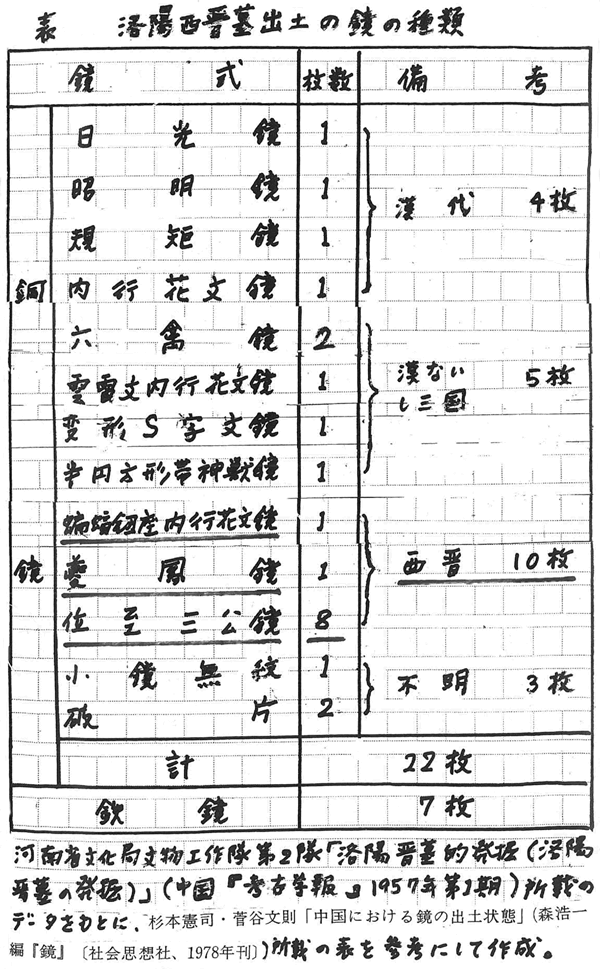 表 洛陽西晋墓出土の鏡の種類
鏡式 枚数 備考
銅鏡
日光鏡 1
昭明鏡 1
規矩鏡 1
内行花文鏡 1
漢代 4枚
六禽鏡 2
雲雷文内行花文鏡 1
変形S字文鏡 1
半円方形帯神獣鏡 1
漢ない
し三国 5枚
蝙蝠鈕座内行花文鏡 1
夔鳳鏡 1
位至三公鏡 8
西晋 10枚
小鏡無紋 1
破片 2
不明 3枚
計 22枚
鉄鏡 7枚
河南省文化局文物工作隊第2隊「洛陽晋墓的発掘(洛陽
晋墓の発掘)」(中国『考古学報』1957年第1期)所載の
データをもとに、杉本憲司・菅谷文則「中国における鏡の出土状態」(森浩一
編『鏡』〔社会思想社、1978年刊〕)所載の表を参考にして作成。